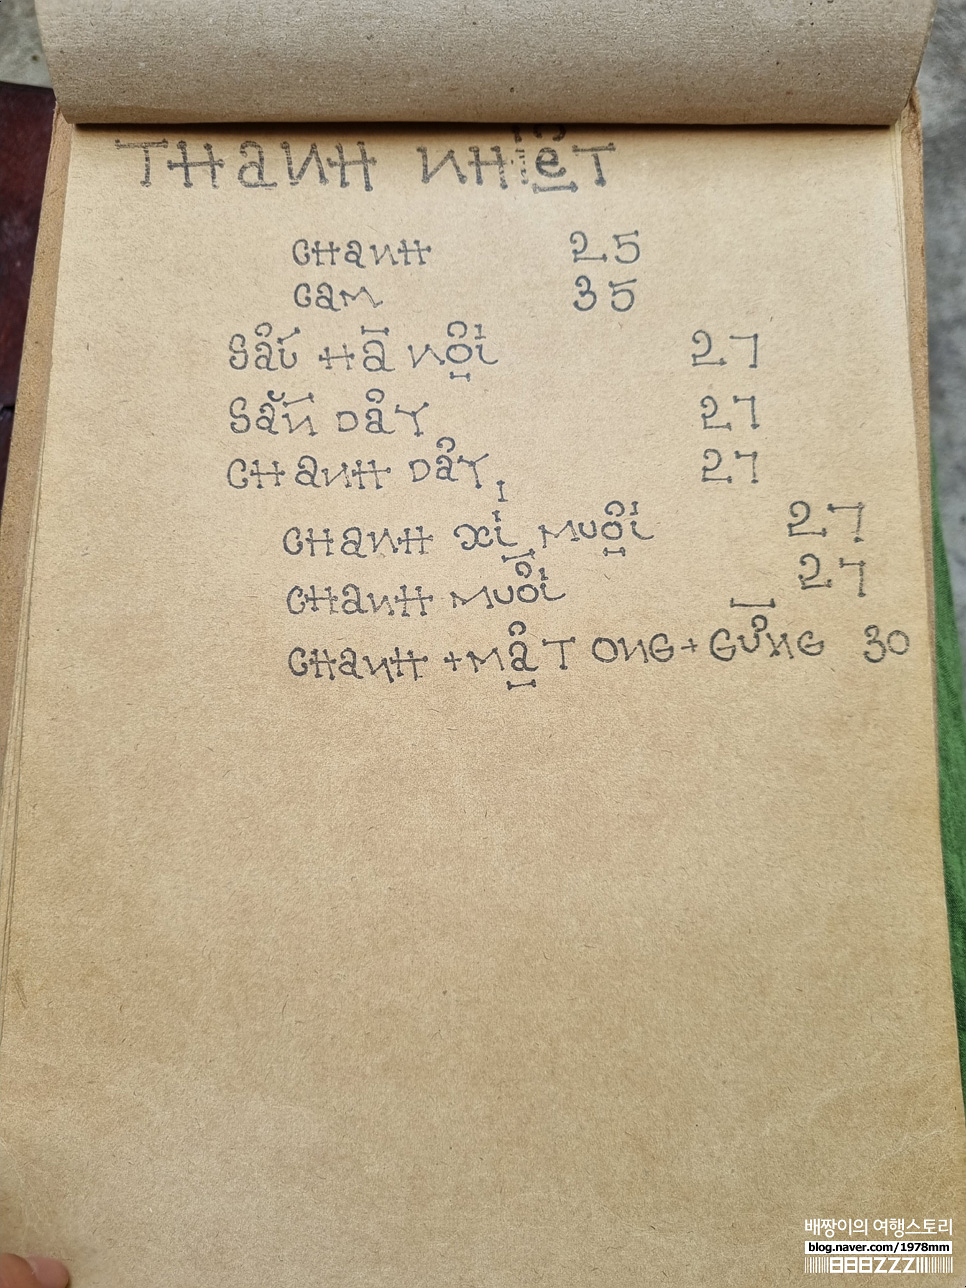 THANH NHIỆT
CHANH 25
CAM 35
SẤU HÀ NỘI 27
SẮN DÂY 27
CHANH DÂY 27
CHANH XÍ MUỘI 27
CHANH MUỐI 27
CHANH + MẬT ONG + GỪNG 30
배짱이의 여행스토리
blog.naver.com/1978mm